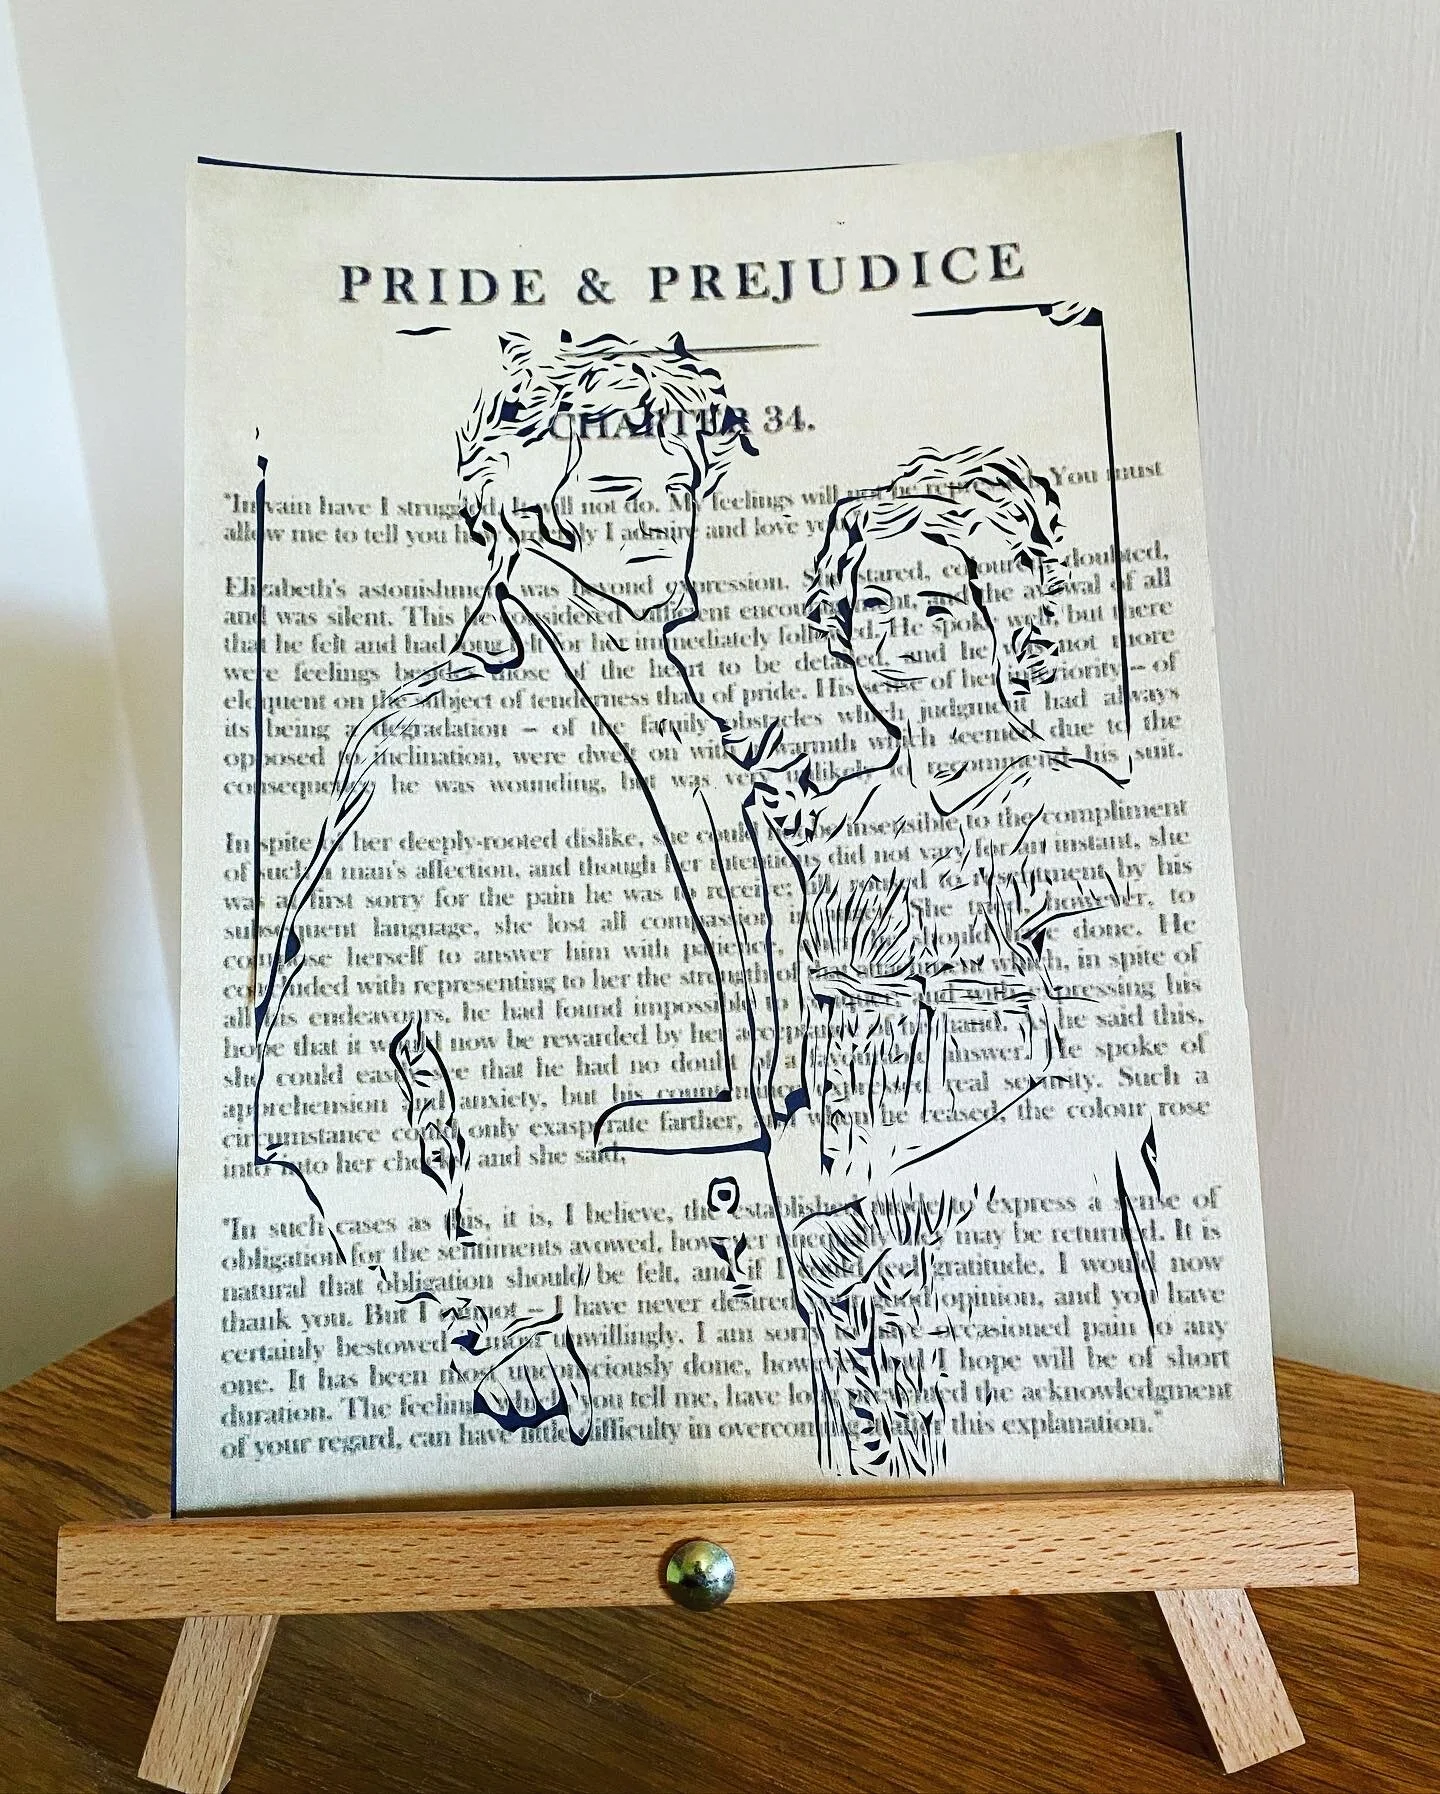 PRIDE & PREJUDICE
CHAPTER 34.
"In vain have I struggled. It will not do. My feelings will not be repressed. You must
allow me to tell you how ardently I admire and love you."
Elizabeth's astonishment was beyond expression. She stared, coloured, doubted,
and was silent. This he considered sufficient encouragement, and the avowal of all
that he felt and had long felt for her immediately followed. He spoke well, but there
were feelings besides those of the heart to be detailed, and he was not more
eloquent on the subject of tenderness than of pride. His sense of her inferiority – of
its being a degradation – of the family obstacles which judgment had always
opposed to inclination, were dwelt on with a warmth which seemed due to the
consequence he was wounding, but was very unlikely to recommend his suit.
In spite of her deeply-rooted dislike, she could not be insensible to the compliment
of such a man's affection, and though her intentions did not vary for an instant, she
was at first sorry for the pain he was to receive; till, roused to resentment by his
subsequent language, she lost all compassion in anger. She tried, however, to
compose herself to answer him with patience, when he should have done. He
concluded with representing to her the strength of that attachment which, in spite of
all his endeavours, he had found impossible to conquer; and with expressing his
hope that it would now be rewarded by her acceptance of his hand. As he said this,
she could easily see that he had no doubt of a favourable answer. He spoke of
apprehension and anxiety, but his countenance expressed real security. Such a
circumstance could only exasperate farther, and when he ceased, the colour rose
into into her cheeks, and she said,
"In such cases as this, it is, I believe, the established mode to express a sense of
obligation for the sentiments avowed, however unequally they may be returned. It is
natural that obligation should be felt, and if I could feel gratitude, I would now
thank you. But I cannot – I have never desired your good opinion, and you have
certainly bestowed it most unwillingly. I am sorry to have occasioned pain to any
one. It has been most unconsciously done, however, and I hope will be of short
duration. The feelings which, you tell me, have long prevented the acknowledgment
of your regard, can have little difficulty in overcoming it after this explanation."